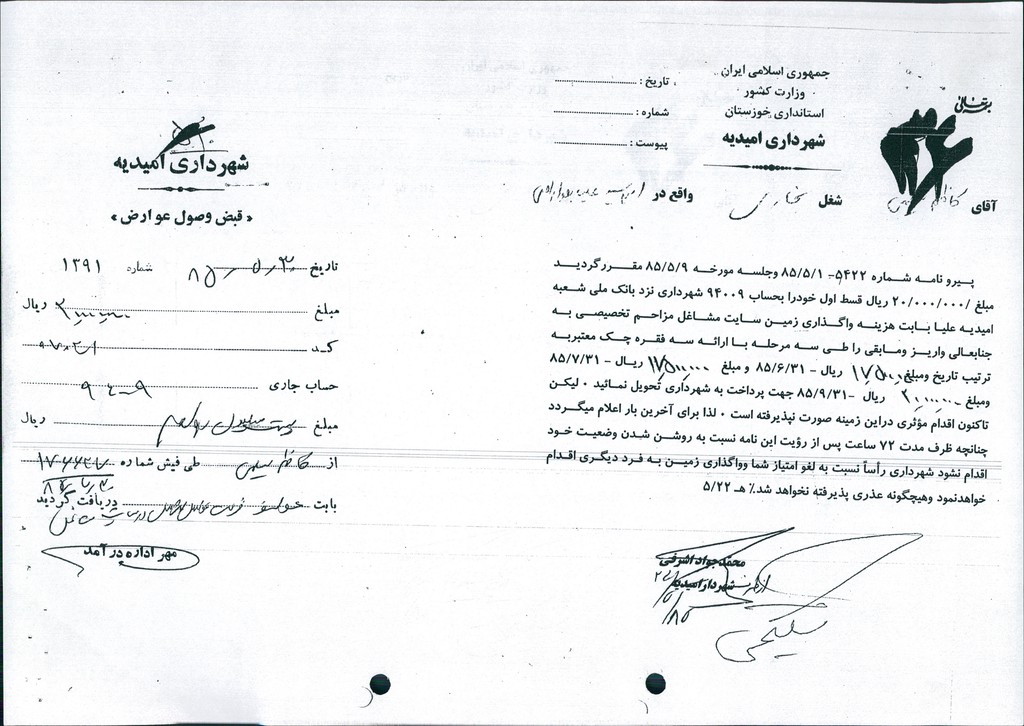 جمهوری اسلامی ایران
وزارت کشور
استانداری خوزستان
شهرداری امیدیه
تاریخ :
شماره :
پیوست :
آقای کاظم شغل نجاری واقع در
پیرو نامه شماره ۵۴۲۲-۸۵/۵/۱ وجلسه مورخه ۸۵/۵/۹ مقررگردید
مبلغ /۲۰/۰۰۰/۰۰۰ ریال قسط اول خودرا بحساب ۹۴۰۰۹ شهرداری نزد بانک ملی شعبه
امیدیه علیا بابت هزینه واگذاری زمین سایت مشاغل مزاحم تخصیصی به
جنابعالی واریز ومابقی را طی سه مرحله با ارائه سه فقره چک معتبربه
ترتیب تاریخ ومبلغ ریال - ۸۵/۶/۳۱ و مبلغ ریال - ۸۵/۷/۳۱
ومبلغ ریال -۸۵/۹/۳۱ جهت پرداخت به شهرداری تحویل نمائید ۰ لیکن
تاکنون اقدام مؤثری دراین زمینه صورت نپذیرفته است ۰ لذا برای آخرین بار اعلام میگردد
چنانچه ظرف مدت ۷۲ ساعت پس از رؤیت این نامه نسبت به روشن شدن وضعیت خود
اقدام نشود شهرداری رأساً نسبت به لغو امتیاز شما وواگذاری زمین به فرد دیگری اقدام
خواهدنمود وهیچگونه عذری پذیرفته نخواهد شد.٪ هـ ۵/۲۲
محمدجواد اشرفی
شهردار امیدیه
شهرداری امیدیه
« قبض وصول عوارض »
تاریخ ۸۵/۵/۳۰ شماره ۱۳۹۱
مبلغ ریال
کد
حساب جاری ۹۴۰۰۹
مبلغ ریال
از کاظم طی فیش شماره
بابت دریافت گردید
مهر اداره درآمد